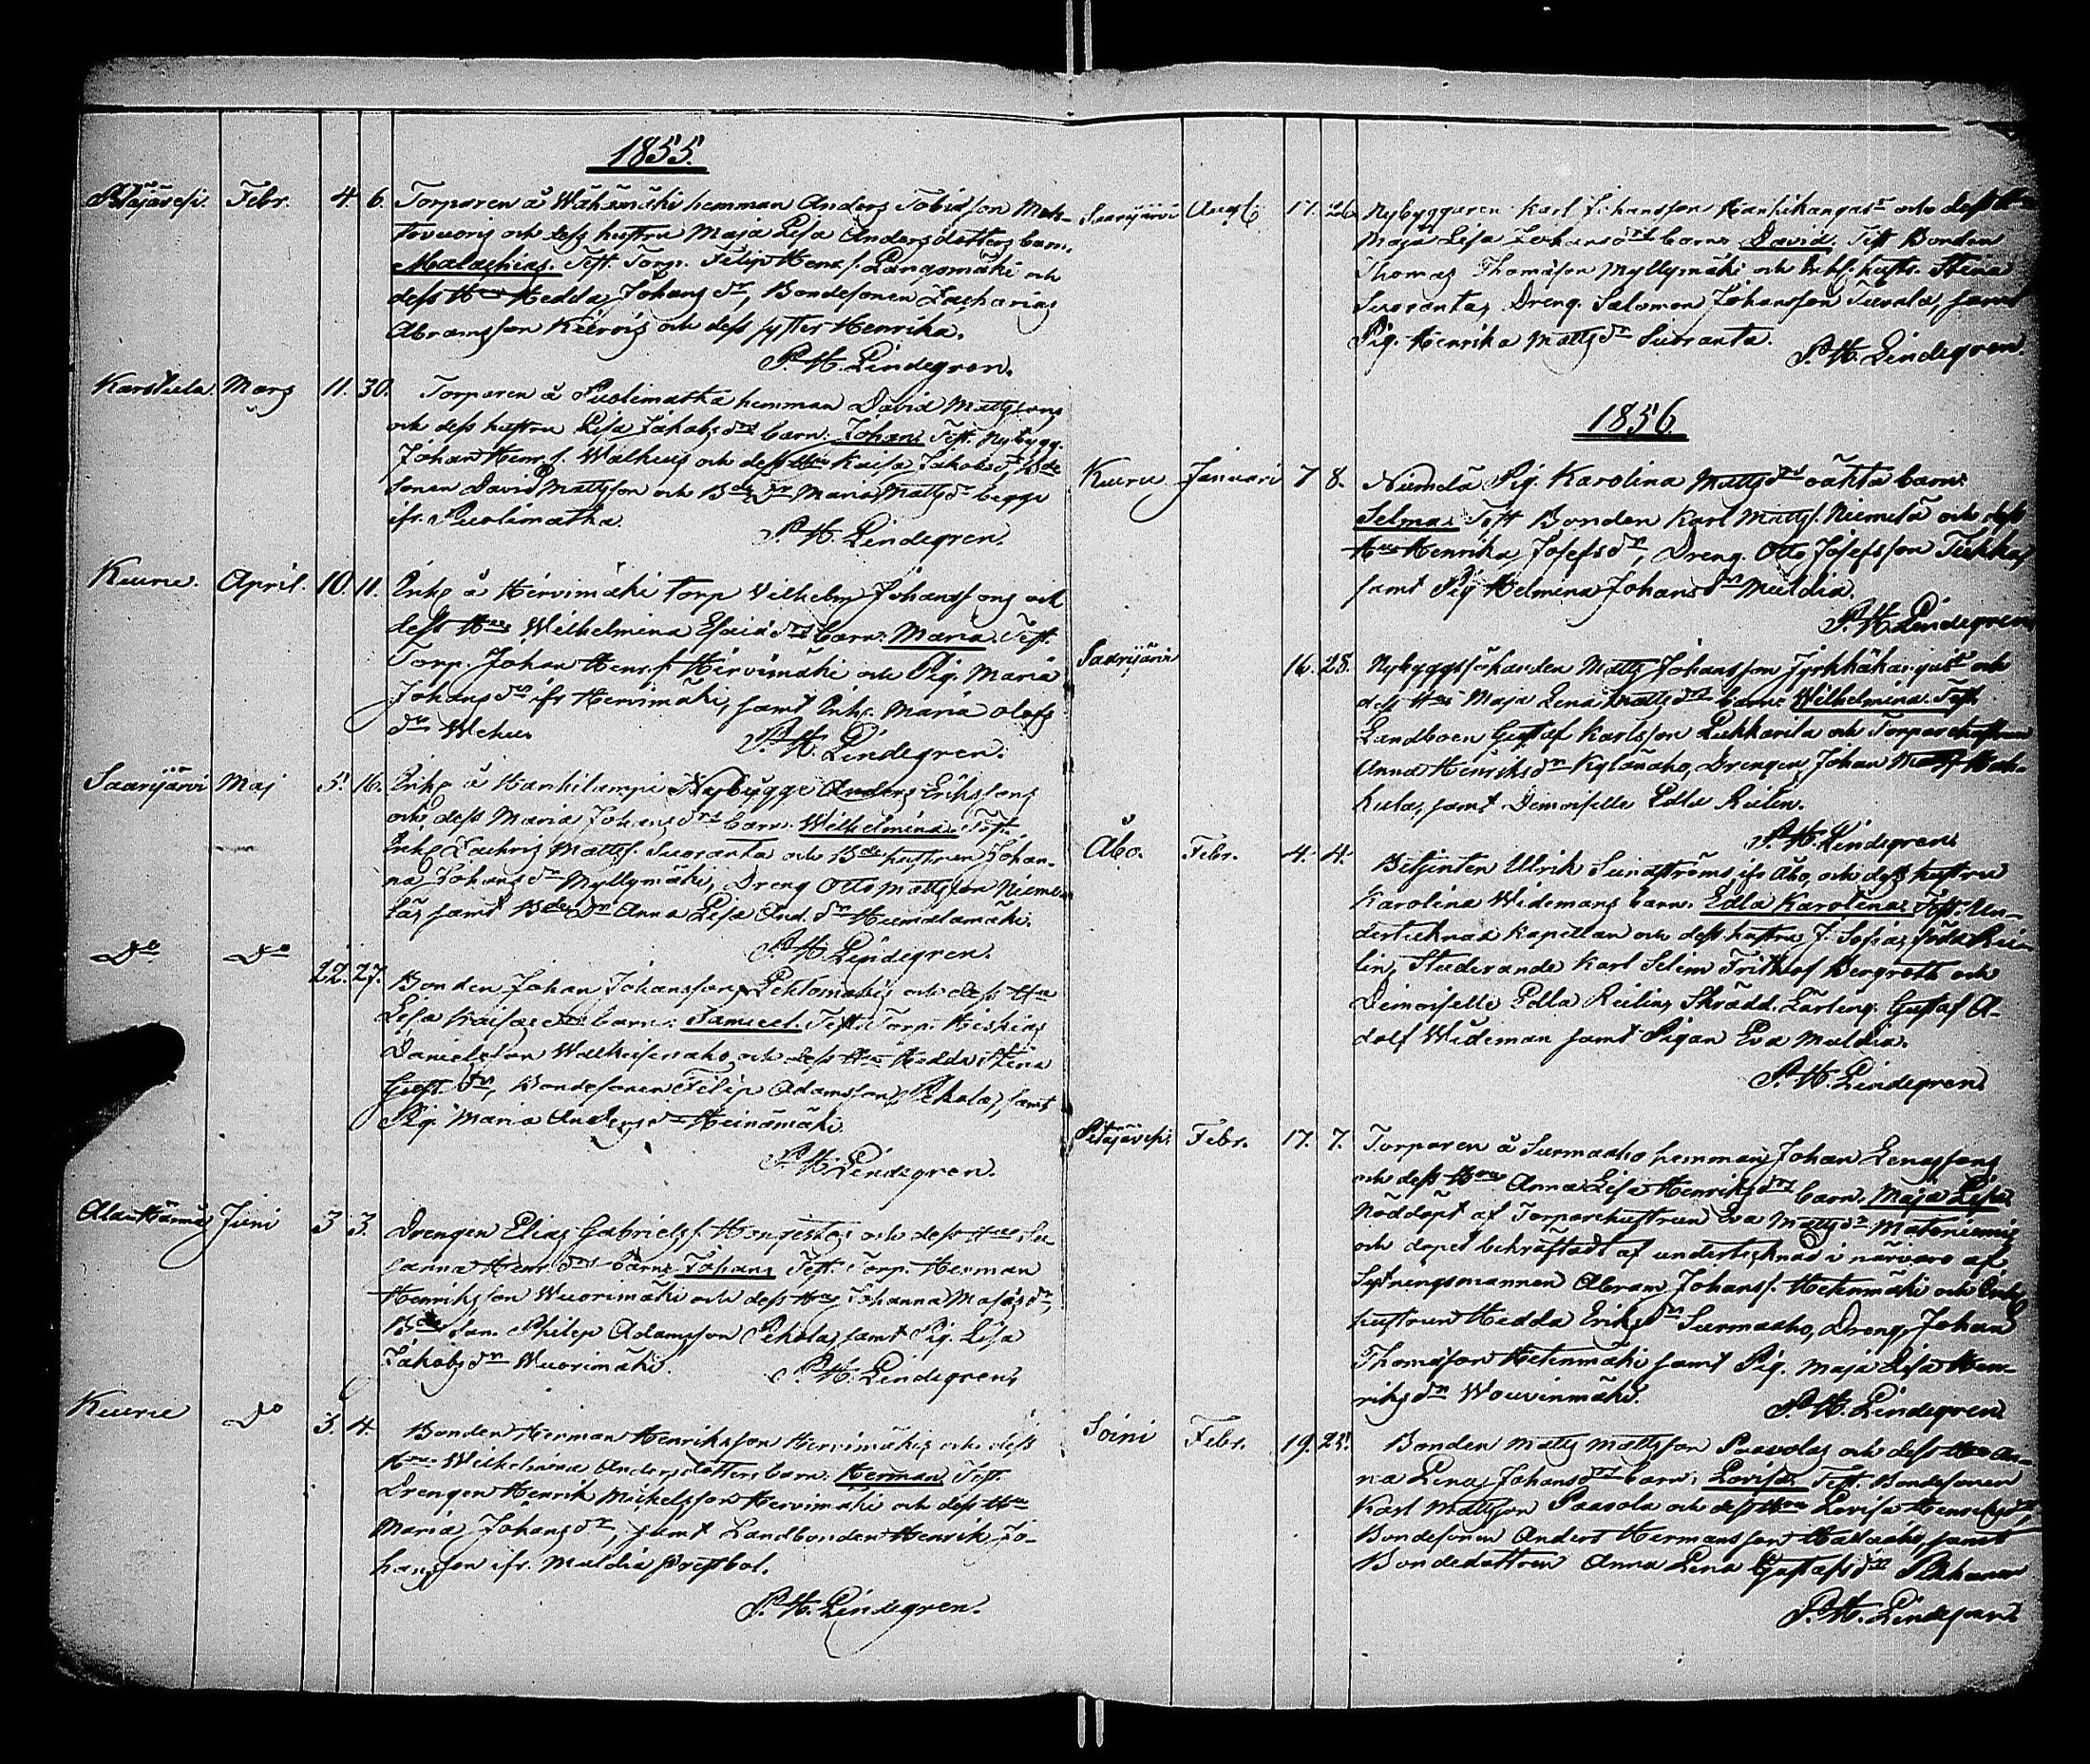 1855.
Petäjävesi. Febr. 4 6. Torparen å Wähämäki hemman Anders Tobiasson Mah-
och dess hustru Maja Lisa Andersdotters barn,
Malachias. Test. Torp. Filip Henr. s. Långsmäki och
dess Hu Hedda Johans dr, Bondesonen Zacharias
Abramsson och dess syster Henrika.
P. H. Lindegren.
Karstula. Mars 11. 30. Torparen å Puolimatka hemman David Mattssons
och dess hustru Lisa Jakobs drs barn. Johan. Test. Nybygg.
Johan Henr. s. och dess Hu Kaisa Jakobs dr, Bde
sonen David Mattsson och Bde dr Maria Matts dr begge
ifr. Puolimatka.
P. H. Lindegren.
Keuru. April. 10. 11. Inhs å Hirvimäki torp Wilhelm Johanssons och
dess Hus Wilhelmina Esaiæ drs barn. Maria. Test.
Torp. Johan Henr. s. Hirvimäki och Pig. Maria
Johans dr ifr Hirvimäki, samt Inhs. Maria Olofs
dr Wehu.
P. H. Lindegren.
Saarijärvi Maj 5. 16. Inhs å Hankilampi Nybygge Anders Erikssons
och dess Maria Johans drs barn. Wilhelmina. Test.
Inhs Zachris Matts s. Suoranta och Bde hustrun Johan-
na Johans dr Myllymäki, Dreng Otto Mattsson Nieme-
lä, samt Bde dr Anna Lisa And. dr Heimalamäki.
P. H. Lindegren.
Do Do 22. 27. Bonden Johan Johanssons och dess Hu
Lisa Kaisas barn: Samuel. Test. Torp. Hiskias
Danielsson och dess Hu Hedda Stina
Gust. dr, Bondesonen Filip Adamsson Pekola, samt
Pig. Maria Anders dr Heinämäki.
P. H. Lindegren.
Ala-Härmä Juni 3 3. Drengen Elias Gabriels s. Hongistos och dess Hus Su-
sanna Henr drs barn: Johan, Test. Torp. Herman
Henriksson Wuorimäki och dess Hu Johanna dr,
Bde son. Philip Adamsson Pekola, samt Pig. Lisa
Jakobs dr Wuorimäki.
P. H. Lindegren.
Keuru Do 3. 4. Bonden Herman Henriksson Hirvimäkis och dess
Hus Wilhelmina Andersdotters barn. Herman, Test.
Drengen Henrik Mickelsson Hirvimäki och dess Hu
Maria Johans dr, samt Landbonden Henrik Jo-
hansson ifr. Multia prestbol.
P. H. Lindegren.
Saarijärvi Aug. 17. 26. Nybyggaren Karl Johansson Hankikangas och dess Hu
Maja Lisa Johans drs barn. David. Test Bonden
Thomas Thomasson Myllymäki och Inhs. hustr. Stina
Suoranta, Dreng. Salomon Johansson Tuvala, samt
Pig. Henrika Matts dr Suoranta.
P. H. Lindegren.
1856.
Keuru Januari 7 8. Niemelä Pig. Karolina Matts drs oäkta barn:
Selma. Test Bonden Karl Matts s. Niemelä och dess
Hu Henrika Josefs dr, Dreng. Otto Josefsson
samt Pig Helmina Johans dr Multia.
P. H. Lindegren
Saarijärvi 16. 25. Nybyggshanden Matts Johansson och
dess Hus Maja Lena Matts drs barn: Wilhelmina. Test
Landboen Gustaf Karlsson Pukkarila och Torparehustrun
Anna Henriks dr Kylänaho, Drengen Johan Matts s.
samt Demoiselle Edla Relin.
P. H. Lindegren.
Åbo. Febr. 4. 4. Betjenten Ulrik Sundströms ifr Åbo, och dess hustru
Karolina Widemans barn. Edla Karolina. Test. Un-
dertecknad Kapellan och dess hustru J. Sofia, född Re-
lin, Studerande Karl Selim Frithiof Bergroth och
Demoiselle Edla Relin, Skrädd. Lärling. Gustaf A-
dolf Wideman samt Pigan Eva Multia.
P. H. Lindegren.
Petäjävesi. Febr. 17. 7. Torparen å Surmaaho hemman Johan Enassons
och dess Hus Anna Lisa Henriks drs barn. Maja Lisa
Nöddöpt af Torparehustrun Eva Matts dr Matoniemi
och dopet bekräftadt af undertecknad i närvaro af
Sytningsmannen Abram Johans s. Hetenmäki och Inhs
hustrun Hedda Eriks dr Surmaaho, Dreng Johan
Thomasson Hetenmäki samt Pig. Maja Lisa Hen-
riks dr
P. H. Lindegren
Soini Febr. 19. 25. Bonden Matts Mattsson Paavolas och dess Hus An-
na Lena Johans drs barn. Lovisa. Test. Bondesonen
Karl Mattsson Paavola och dess Hu Lovisa Henriks dr,
Bondesonen Anders Hermansson samt
Bondedottren Anna Lena Gustafs dr
P. H. Lindegren